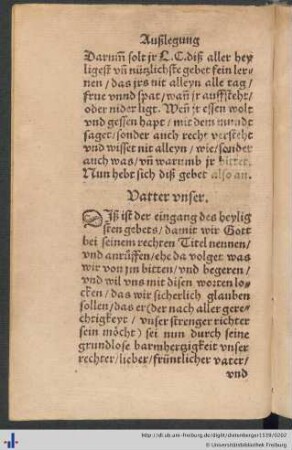 Außlegung
Darum̃ solt jr L.C. diß aller hey
ligest vñ nützlichste gebet fein ler
nen / das jrs nit alleyn alle tag /
frue vnnd spat / wañ jr auffsteht /
oder nider ligt. Weñ jr essen wolt
vnd gessen hapt / mit dem mundt
saget / sonder auch recht versteht
vnd wisset nit alleyn / wie / sonder
auch was / vñ warumb jr bittet.
Nun hebt sich diß gebet also an.
Vatter vnser.
Diß ist der eingang des heylig
sten gebets / damit wir Gott
bei seinem rechten Titel nennen /
vnd anrüffen / ehe da volget was
wir von jm bitten / vnd begeren /
vnd wil vns mit disen worten lo-
cken / das wir sicherlich glauben
sollen / das er (der nach aller gere-
chtigkeyt / vnser strenger richter
sein möcht) sei nun durch seine
grundlose barmhertzigkeit vnser
rechter / lieber / früntlicher vater /
vnd
© Universitätsbibliothek Freiburg